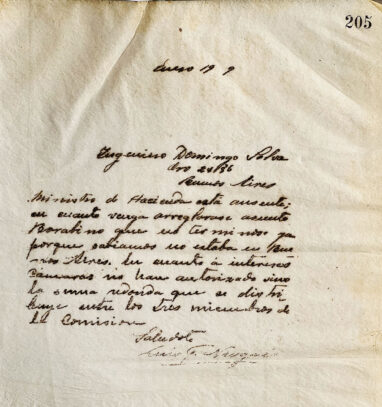 205
Enero 19 9
Ingeniero Domingo Selva
Buenos Aires
Ministro de Hacienda está ausente;
en cuanto venga arreglarase asunto
que no
porque sabiamos no estaba en Bue
nos Aires. En cuanto á intereses
Cámaras no han autorizado sino
la suma redonda que se distri
buye entre los tres miembros de
la Comision
Saludolo
Luis F.